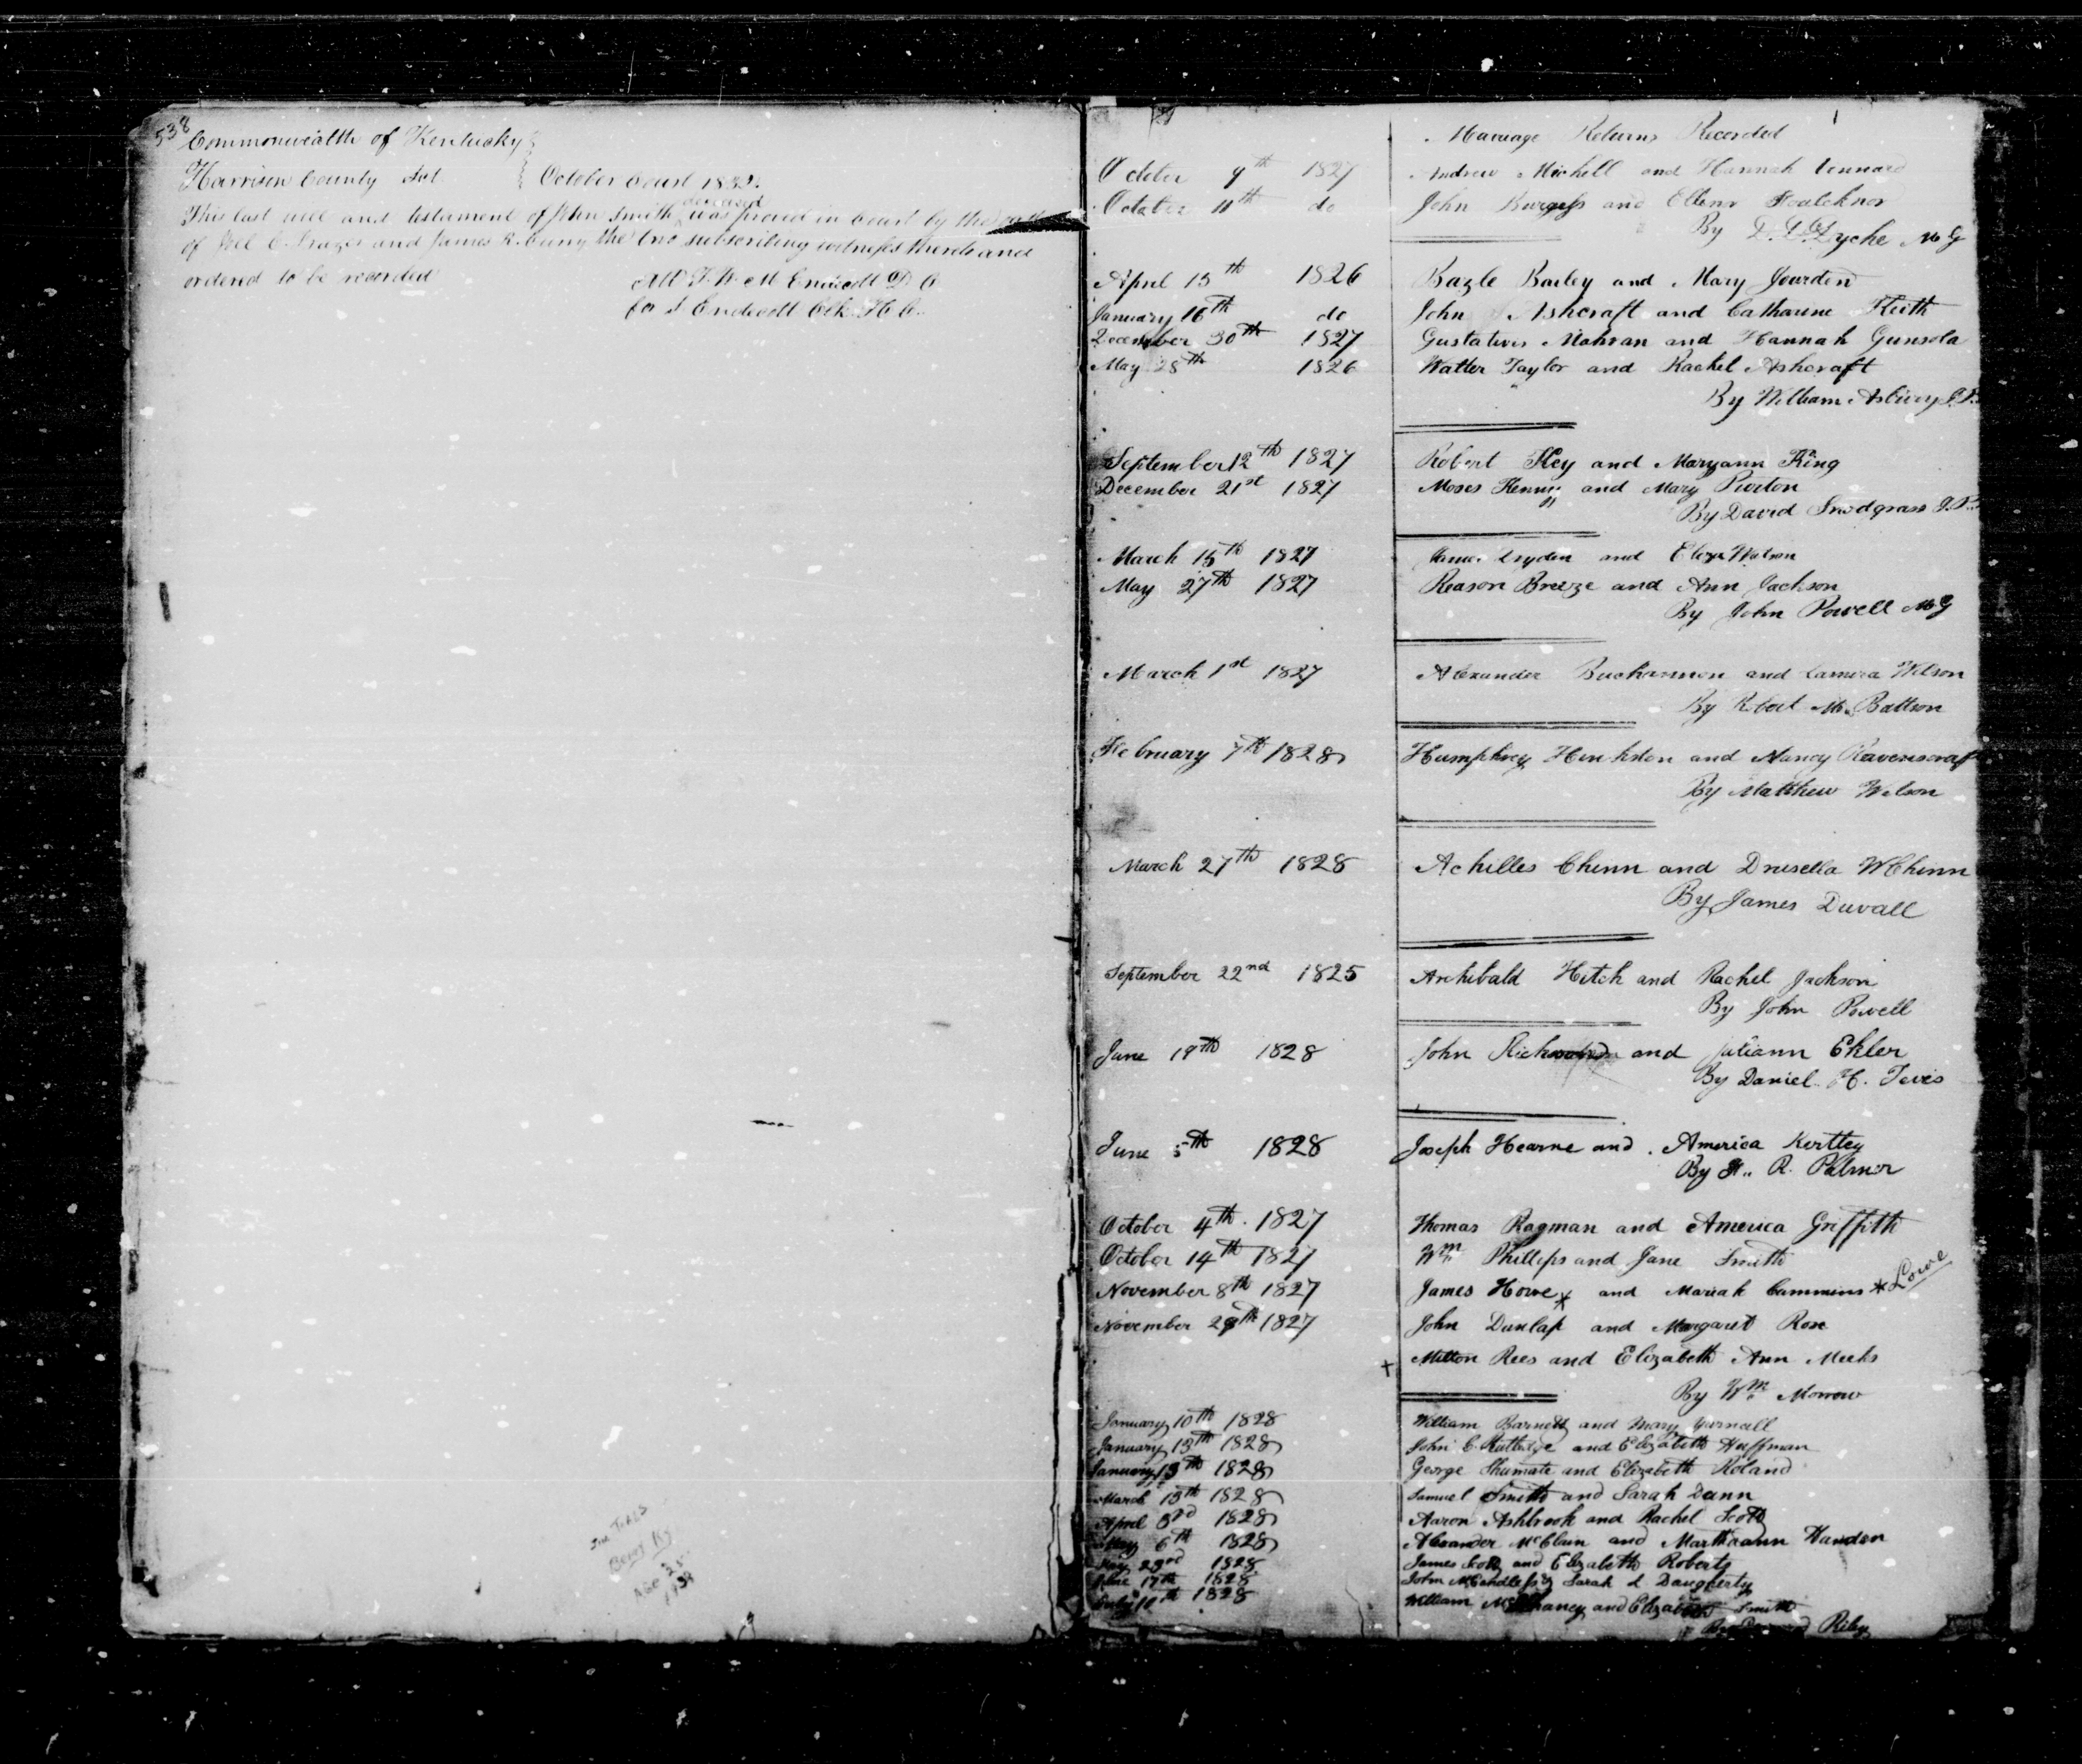 538
Commonwealth of Kentucky
Harrison County Sct. October Court 1832.
deceased
This last will and testament of John Smith was proved in Court by the oath
of Joel C. Frazer and James R. Curry the two subscribing witnesses thereto and
ordered to be recorded
Att T. W. M Endicott D C
for Endicott Clk H C.
Marriage Returns Recorded
October 9th 1827 Andrew Michell and Hannah
October 11th do John Burgess and Ellenr Foulcknor
By Dyche MG
April 13th 1826 Bazle Bailey and Mary Jourden
January 16th do John Ashcraft and Catharine Keith
December 30th 1827 Mahran and Hannah Gunsola
May 28th 1826 Walter Taylor and Rachel Ashcraft
By William Asbury J.P.
September 12th 1827 Robert Key and Maryann King
December 21st 1827 Moses Kenny and Mary Purton
By David Snodgrass J.P.
March 15th 1827 and Eliza Watson
May 27th 1827 Reason Breeze and Ann Jackson
By John Powell MG
March 1st 1827 Alexander Buchannon and Wilson
By Robert M. Battson
February 7th 1828 Humphrey Hinkston and Nancy Ravenscraft
By Matthew Wilson
March 27th 1828 Achilles Chinn and Drusella W Chinn
By James Duvall
September 22nd 1825 Archibald Hitch and Rachel Jackson
By John Powell
June 19th 1828 John and Juliann Ekler
By Daniel H. Tevis
June 5th 1828 Joseph Hearne and America Kertley
By H. R. Palmer
October 4th 1827 Thomas Ragman and America Griffith
October 14th 1827 Wm Phillips and Jane Smith
November 8th 1827 James Howe * and Mariah Cummins * Lowe
November 29th 1827 John Dunlap and Margaret Rose
+ Milton Rees and Elizabeth Ann Meeks
By Wm Morrow
January 10th 1828 William Barnett and Mary Yarnall
January 13th 1828 John C. Rutledge and Elizabeth Huffman
January 13th 1828 George Shumate and Elizabeth Roland
March 13th 1828 Samuel Smith and Sarah Dunn
April 3rd 1828 Aaron Ashbrook and Rachel Scott
May 6th 1828 Alexander McClain and Marthaann Handson
May 23rd 1828 James Scott and Elizabeth Roberts
June 17th 1828 John McCandless & Sarah L Daugherty
July 10th 1828 William and Elizabeth Smith
Riley
Berry Ky
Age 25
1939